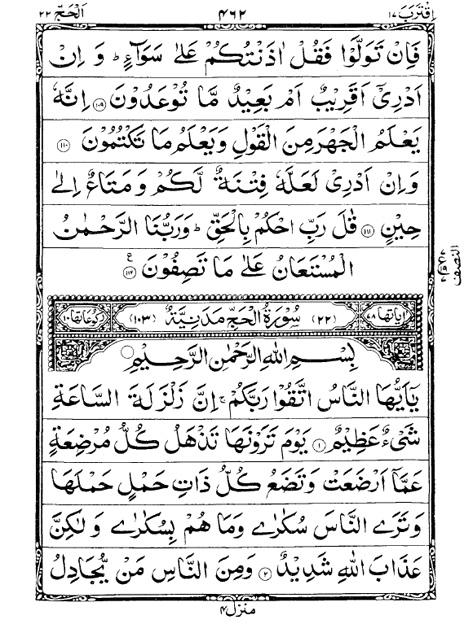 اِقْتَرَبَ ١٧ ٤٦٢ اَلْحَجّ ٢٢
فَاِنْ تَوَلَّوْا فَقُلْ اٰذَنْتُكُمْ عَلٰى سَوَآءٍ ؕ وَ اِنْ
اَدْرِىْٓ اَقَرِيْبٌ اَمْ بَعِيْدٌ مَّا تُوْعَدُوْنَ ﴿١٠٩﴾ اِنَّهٗ
يَعْلَمُ الْجَهْرَ مِنَ الْقَوْلِ وَيَعْلَمُ مَا تَكْتُمُوْنَ ﴿١١٠﴾
وَاِنْ اَدْرِىْ لَعَلَّهٗ فِتْنَةٌ لَّكُمْ وَمَتَاعٌ اِلٰى
حِيْنٍ ﴿١١١﴾ قٰلَ رَبِّ احْكُمْ بِالْحَقِّ ؕ وَرَبُّنَا الرَّحْمٰنُ
الْمُسْتَعَانُ عَلٰى مَا تَصِفُوْنَ ﴿١١٢﴾ ع
النصف
اٰيَاتُهَا ٧٨ (٢٢) سُوْرَةُ الْحَجِّ مَدَنِيَّةٌ (١٠٣) رُكُوْعَاتُهَا ١٠
بِسْمِ اللّٰهِ الرَّحْمٰنِ الرَّحِيْمِ
يٰٓاَيُّهَا النَّاسُ اتَّقُوْا رَبَّكُمْ ۚ اِنَّ زَلْزَلَةَ السَّاعَةِ
شَىْءٌ عَظِيْمٌ ﴿١﴾ يَوْمَ تَرَوْنَهَا تَذْهَلُ كُلُّ مُرْضِعَةٍ
عَمَّآ اَرْضَعَتْ وَتَضَعُ كُلُّ ذَاتِ حَمْلٍ حَمْلَهَا
وَتَرَى النَّاسَ سُكٰرٰى وَمَا هُمْ بِسُكٰرٰى وَلٰكِنَّ
عَذَابَ اللّٰهِ شَدِيْدٌ ﴿٢﴾ وَمِنَ النَّاسِ مَنْ يُّجَادِلُ
منزل ٤